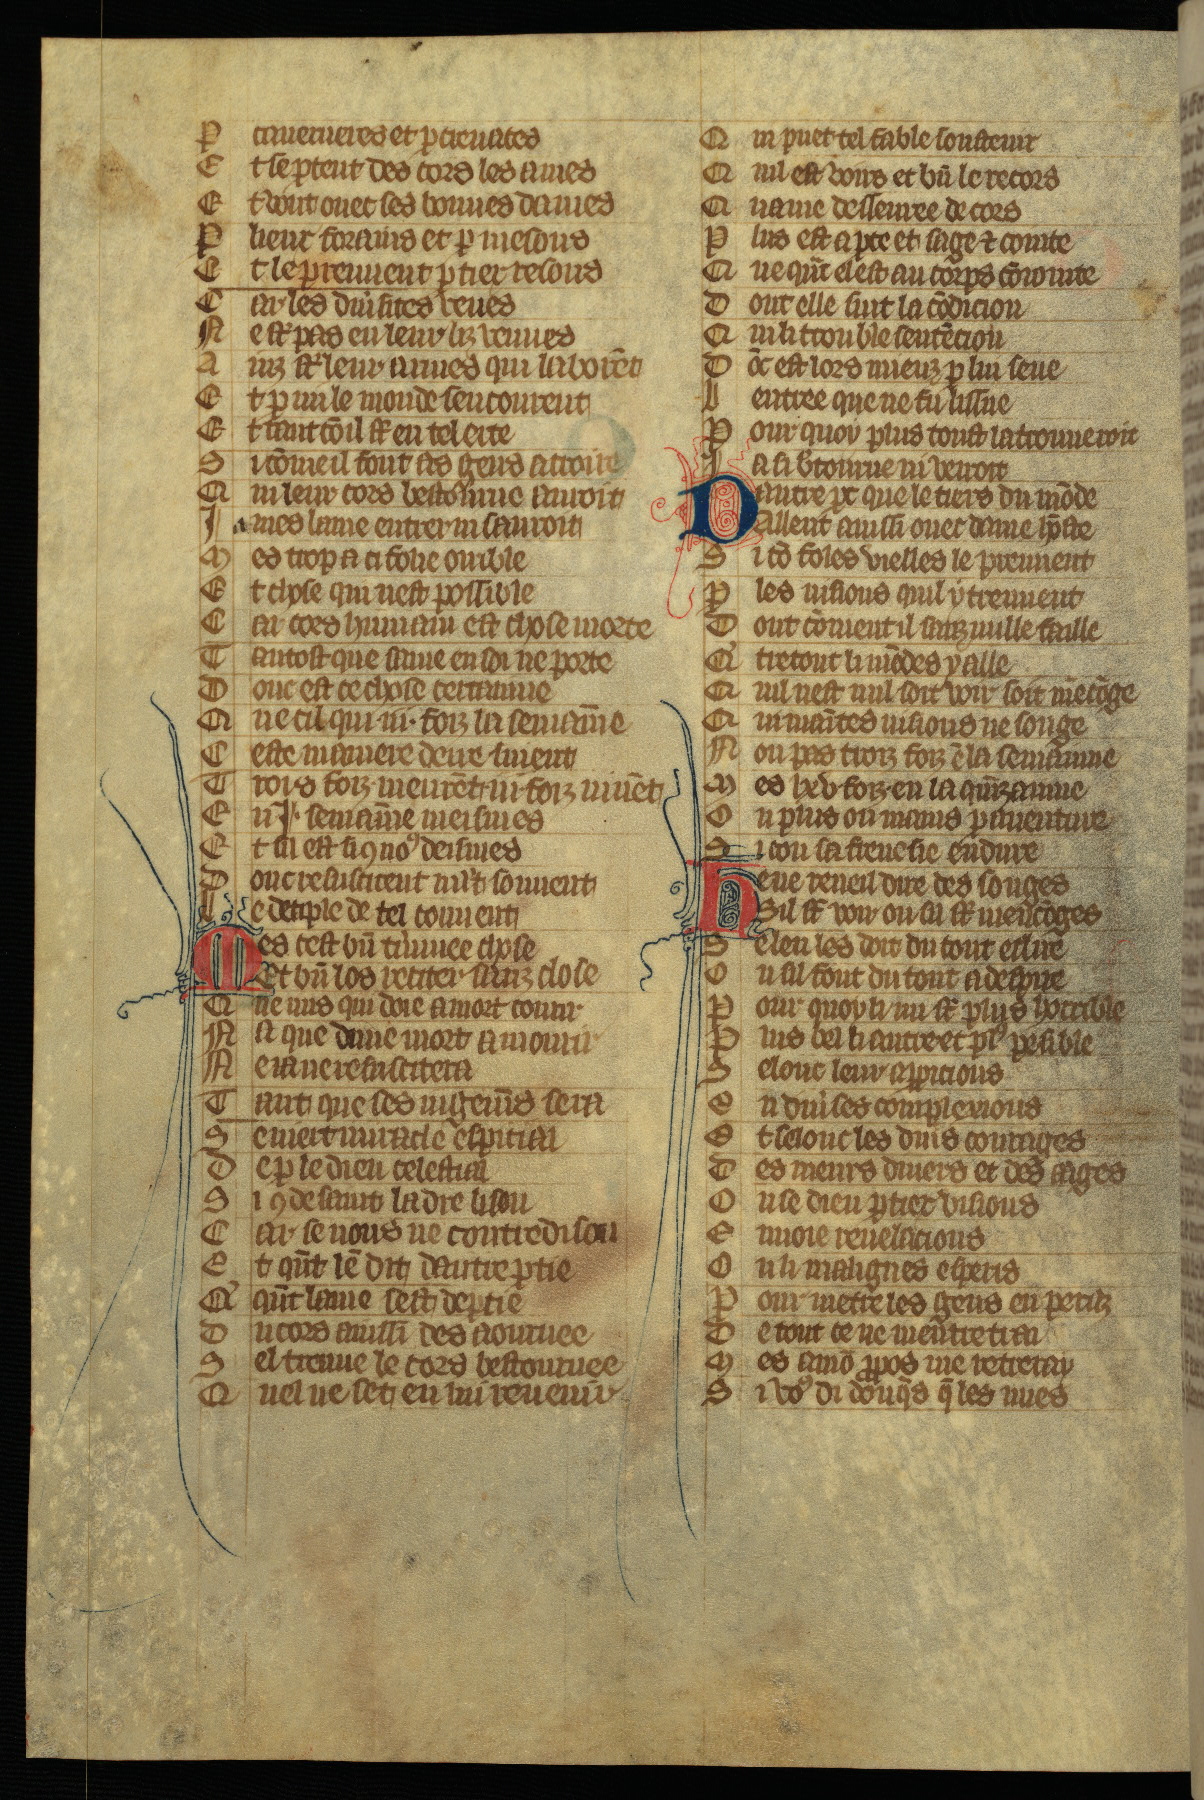 P ar creueures et p crevaces
E t se ptent des cors les ames
E t vont ouec les bonnes dames
P lieur forains et p mesons
E t le preuuent p tiex resons
C ar les diũsites veues
N e sſt pas en leur liz venues
A inz sſt leur ames qui laborẽt
E t p mi le monde sencourent
E t tant cõ il sſt en tel erre
S i cõme il font as gens acroire
Q ui leur cors bestornue auroit
J ames lame entrer ni sauroit
M es trop a ci folie orrible
E t chose qui nest possible
C ar cors humain est chose morte
T antost que lame en soi ne porte
D onc est ce chose certainne
Q ne cil qui iii. foiz la semainne
C este maniere deirre siuent
T rois foiz meurẽt iii foiz viuẽt
E n .I. semaĩne meismes
E t sil est si 9 no9 deismes
D onc resuscitent mlt souuent
L e deciple de tel couuent
Mes cest bñ termince chose
Et bñ los reciter sanz close
Q ue nus qui doie a mort courir
N a que dune mort a mourir
N e ia ne resuscitera
T ant que ses iugemẽs sera
S e niert miracle espicial
D e p le dieu celestial
S i 9 de saint ladre lison
C ar se nous ne contredison
E t qũt lẽ dit dautre ptie
Q qũt lame sest deptie
D u cors ainssi desaournee
S el treuue le cors bestournee
Q uel ne set en lui reuenir
Q ui puet tel fable soustenir
Q uil est voirs et bñ le recors
Q uame desseuree de cors
P lus est apte et sage et cointe
Q ue qũt el est au corps cõiointe
D ont elle suit la cõdicion
Q ui li trouble sentẽcion
D õc est lors mieuz p lui seue
L entree que ne fu lissue
P our quoy plus tost la trouueroit
J a si btourne ni venoit
Dautre pt que le tiers du mõde
Aillent ainssi ouec dame hõde
S i cõ foles vielles le preuuent
P les visions quil y treuuent
D ont cõuient il sanz nulle faille
Q tretout li mõdes y aille
Q uil nest nul soit voir soit mẽcõge
Q ui maĩtes visions ne songe
N on pas troiz foiz ẽ la semainne
M es bz v foiz en la quizainne
O u plus ou mains p auenture
S i con la frenesie endure
Ne ne reueil dire des songes
Sil sſt voir ou sil sſt mẽcõges
S e len les doit du tout eslire
O u sil font du tout a despire
P our quoy li un sſt plus horrible
P lus bel li autre et pl9 pesible
S elonc leur appicions
E n diũses complexions
E t selonc les diũs courages
D es meurs diuers et des aages
O u se dieu p tiex visions
E nuoie reuelacions
O u li malignes esperis
P our metre les gens en periz
D e tout ce ne mẽtremetrai
M es a mõ ppos me retreray
S i vo9 di dõcqs q les nues